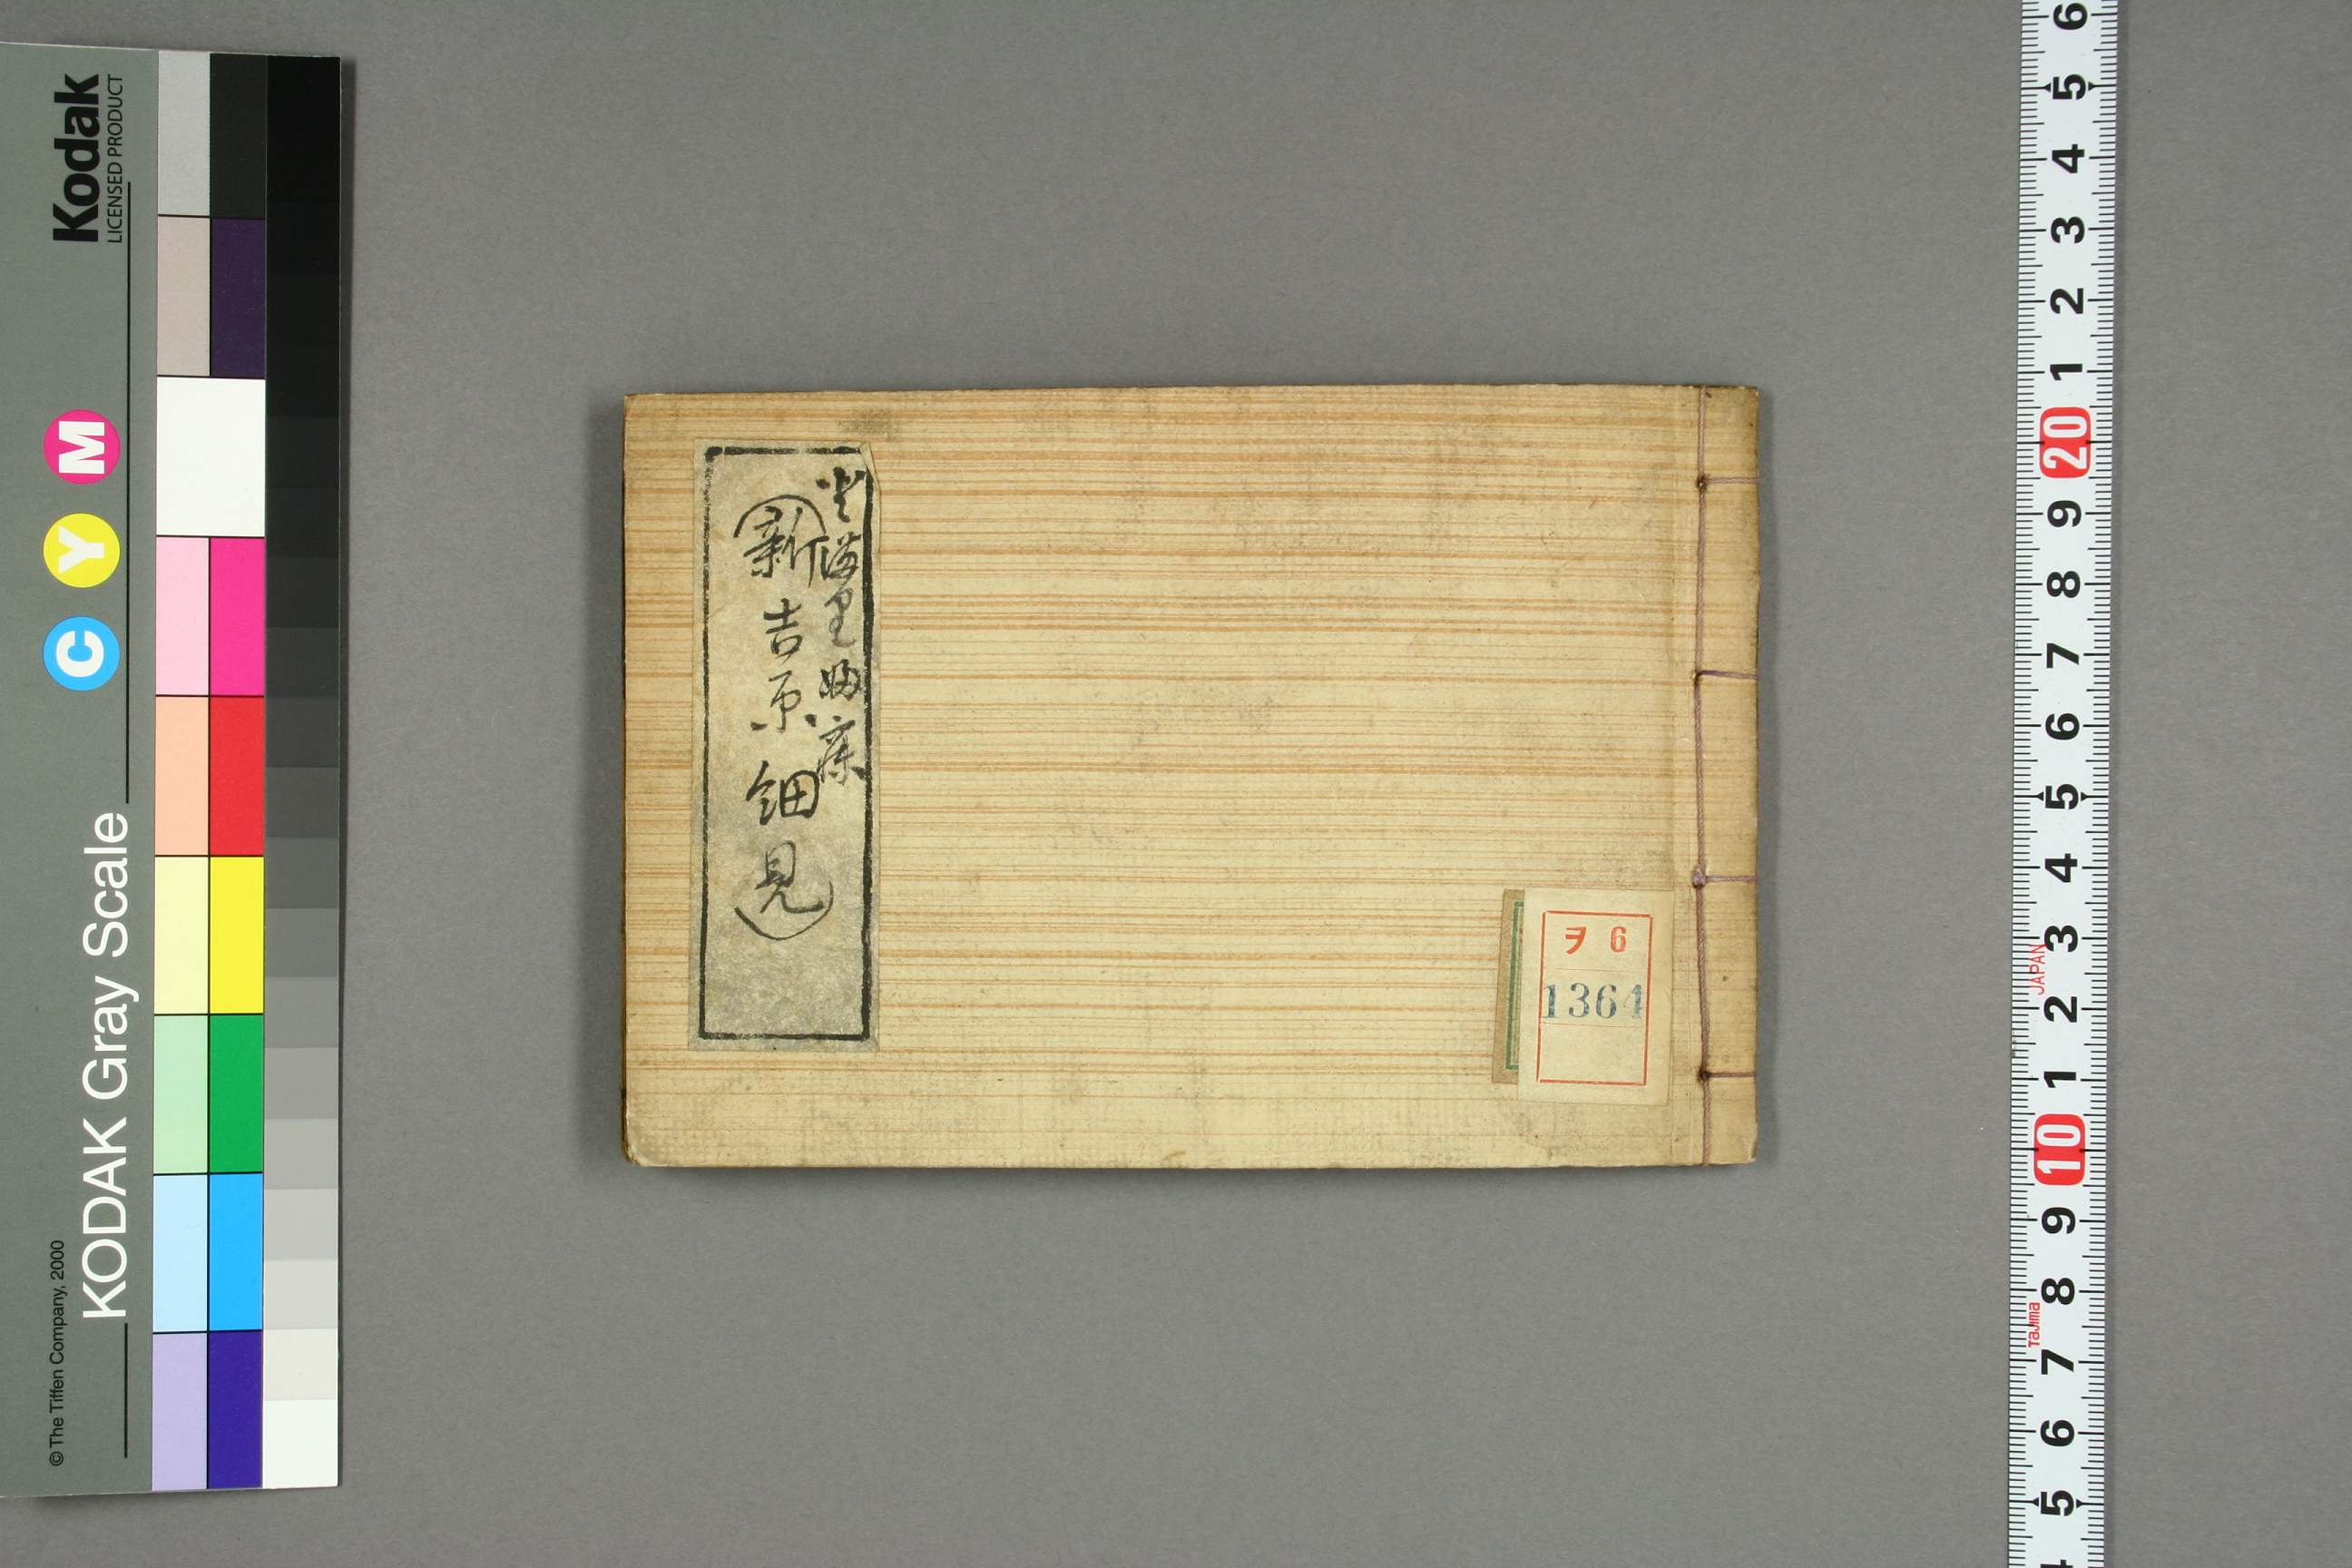 (新吉原細見)
ヲ 6
1364
Kodak
LICENSED PRODUCT
C Y M
KODAK Gray Scale
© The Tiffen Company, 2000
6
5
4
3
2
1
20
9
8
7
6
5
4
3
JAPAN
2
1
10
9
8
Tajima
7
6
5